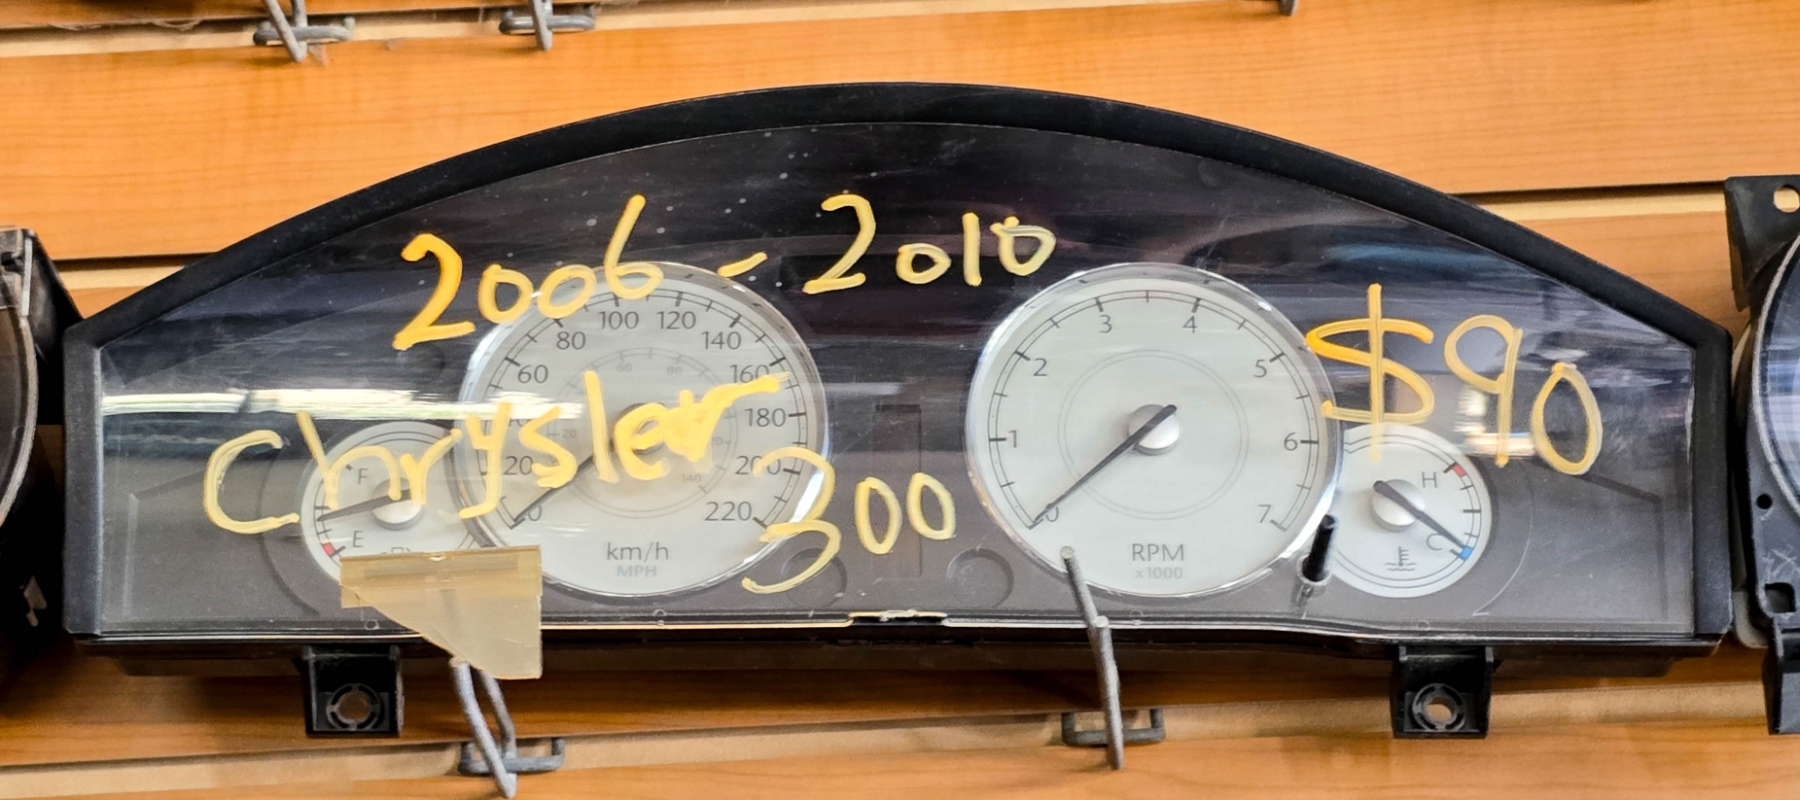 2006 - 2010
$90
Chrysler
300
100 120
80 140
60 160
40 180
20 200
0 220
km/h
MPH
3 4
2 5
1 6
0 7
RPM
x1000
F
E
H
C